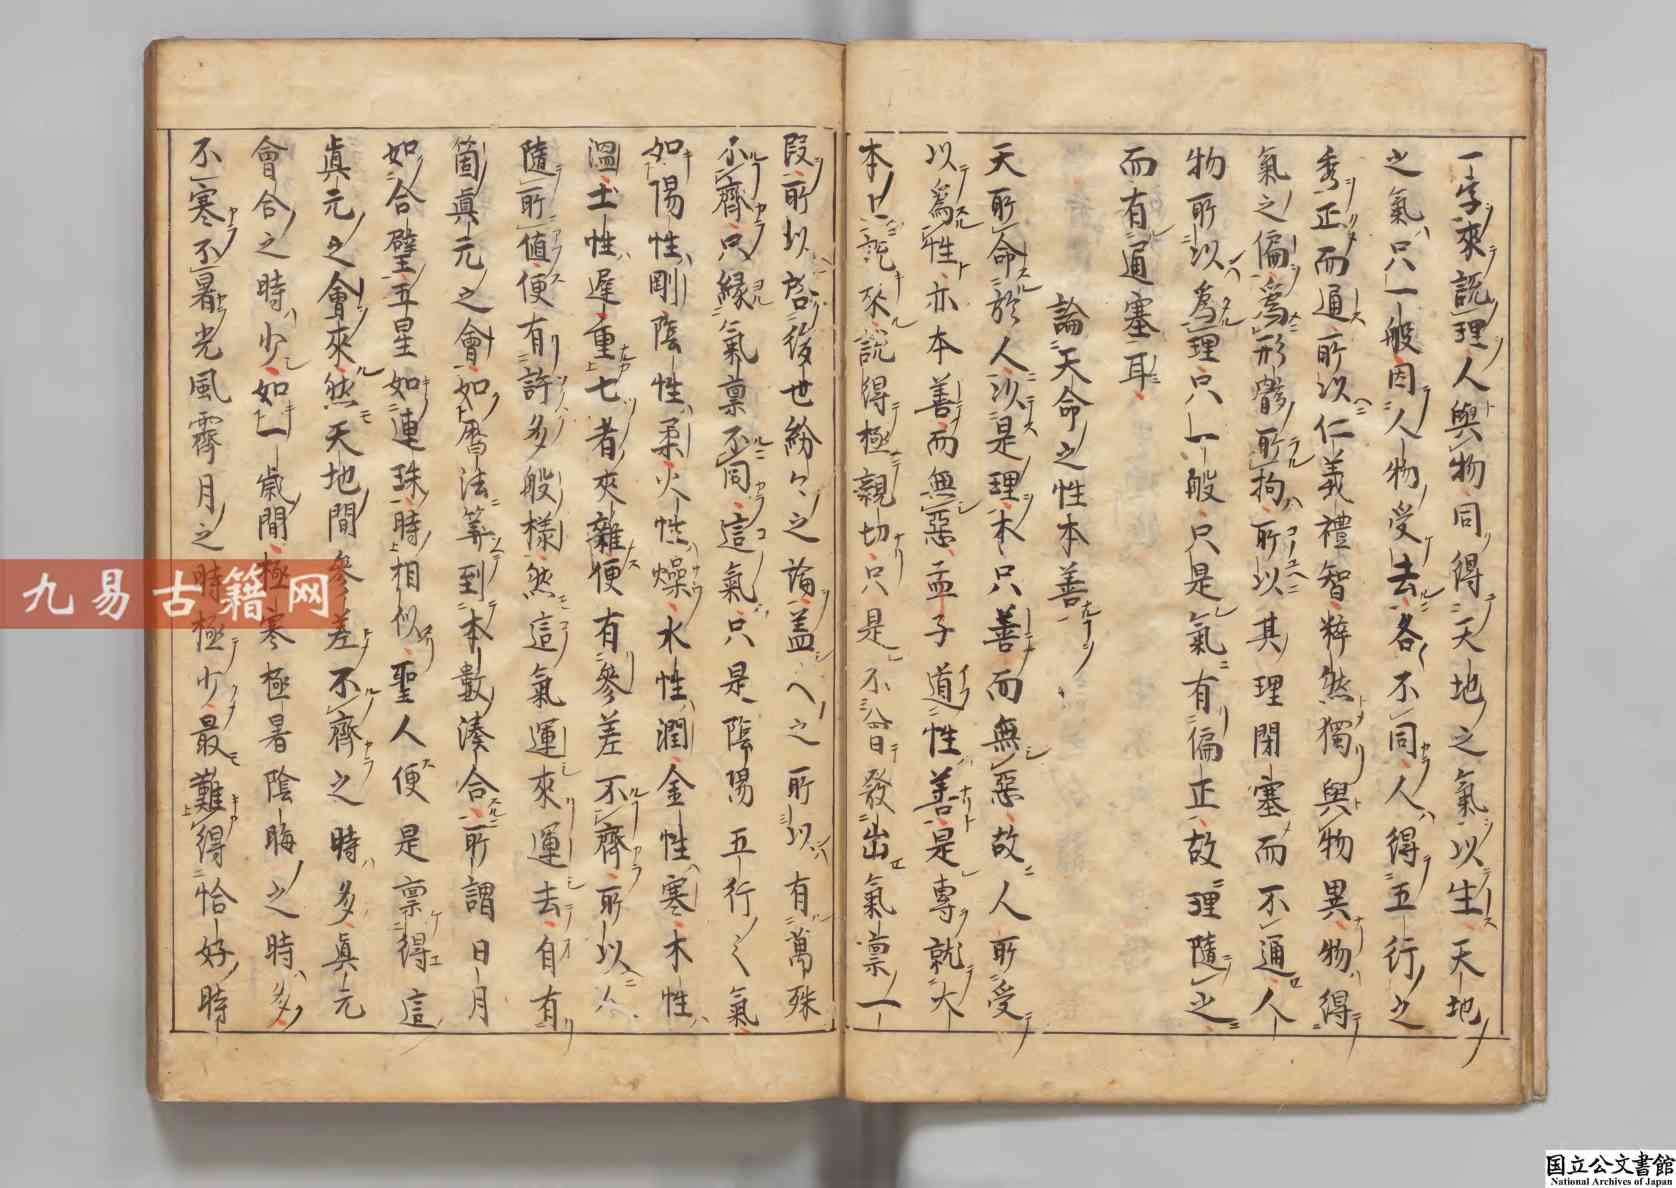 一字來説理人與物同得天地之氣以生天地
之氣只一般因人物受去各不同人得五行之
秀正而通所以仁義禮智粹然獨與物異物得
氣之偏為形骸所拘所以其理閉塞而不通人
物所以為理只一般只是氣有偏正故理隨之
而有通塞耳
論天命之性本善
天所命於人以是理本只善而無惡故人所受
以為性亦本善而無惡孟子道性善是專就大
本上説來説得極親切只是不曾發出氣禀一
段所以啓後世紛々之論蓋人之所以有萬殊
不齊只縁氣禀不同這氣只是陰陽五行之氣
如陽性剛陰性柔火性燥水性潤金性寒木性
溫土性遲重七者夾雜便有參差不齊所以人
隨所值便有許多般樣然這氣運來運去自有
箇真元之會如曆法筭到本數湊合所謂日月
如合璧五星如連珠時相似聖人便是禀得這
真元之會來然天地間參差不齊之時多真元
會合之時少如一歳間極寒極暑陰晦之時多
不寒不暑光風霽月之時極少最難得恰好時
九易古籍网
国立公文書館
National Archives of Japan